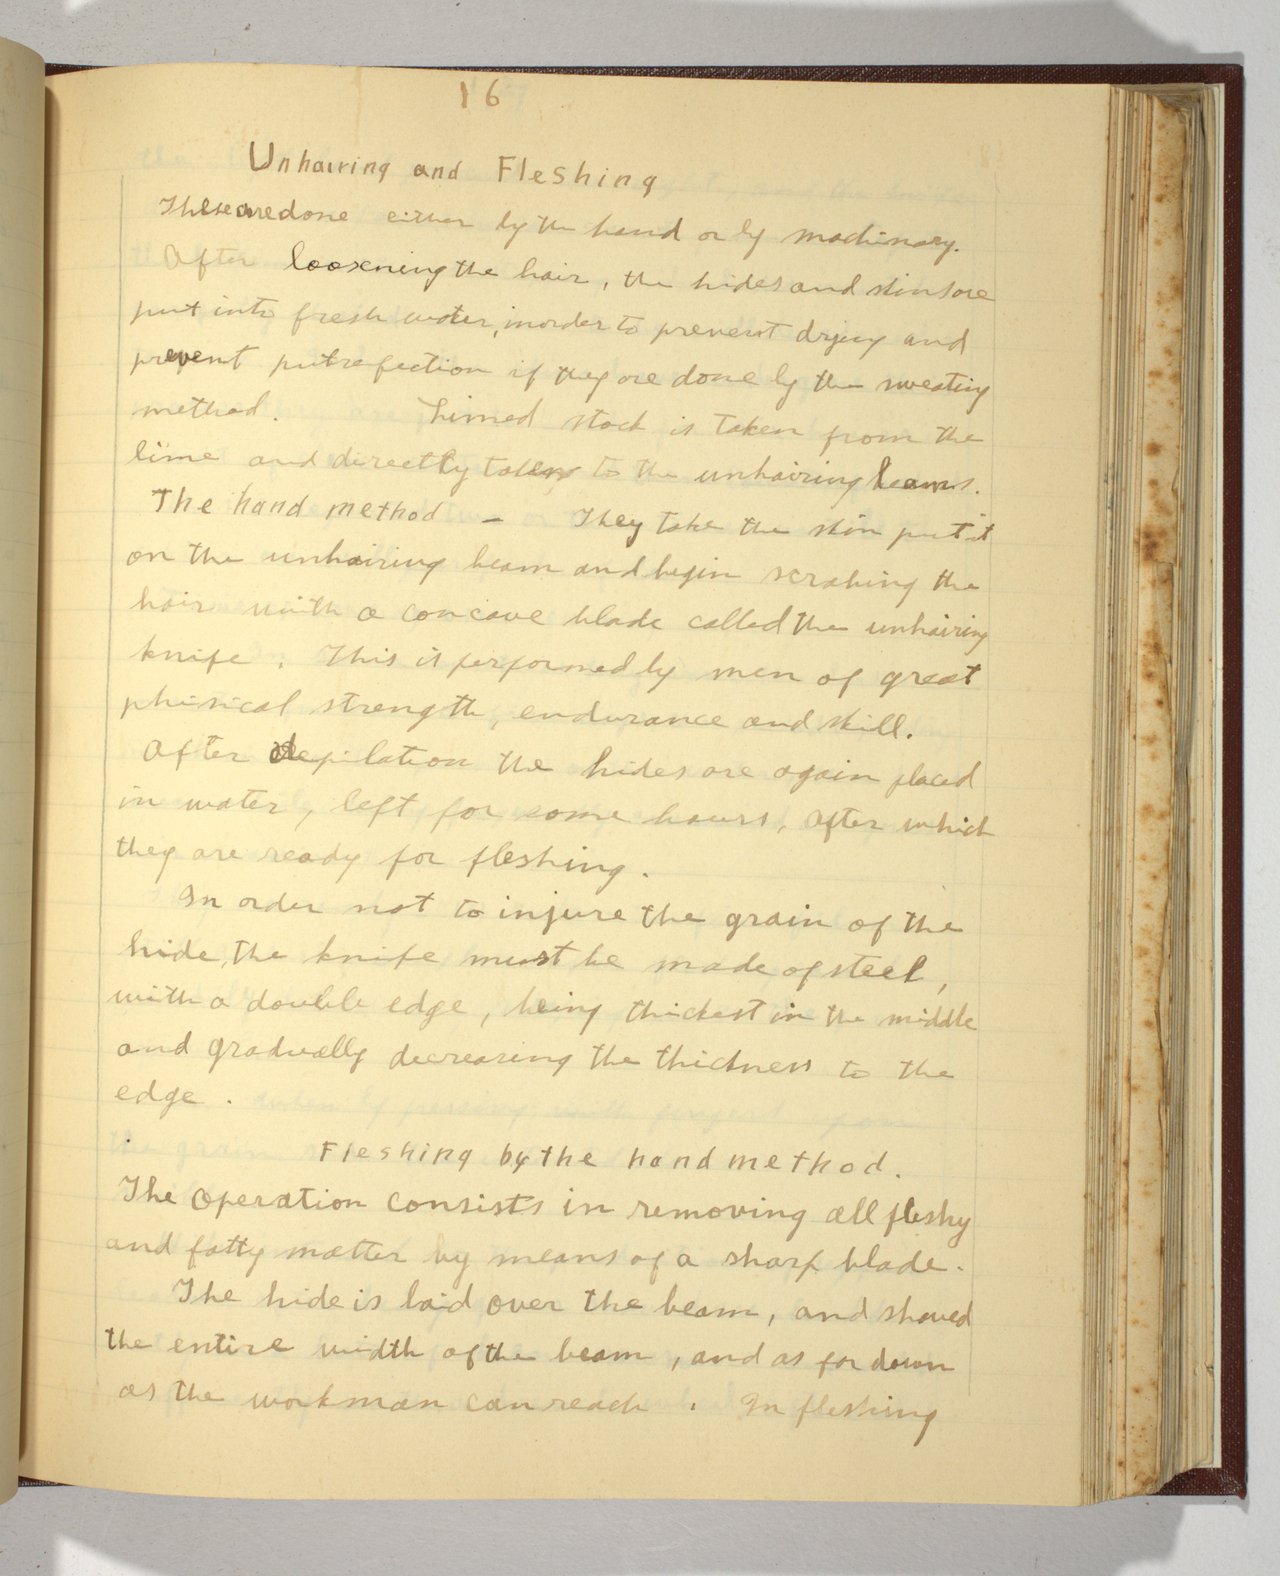 16
Unhairing and Fleshing
These are done either by the hand or by machinary.
After loosening the hair, the hides and skins are
put into fresh water, in order to prevent drying and
prevent putrefection if they are done by the sweating
method. Limed stock is taken from the
lime and directly taken to the unhairing beams.
The hand method - They take the skin put it
on the unhairing beam and begin scrabing the
hair with a concave blade called the unhairing
knife. This is performed by men of great
phisical strength, endurance and skill.
After depilation the hides are again placed
in water, left for some hours, after which
they are ready for fleshing.
In order not to injure the grain of the
hide, the knife must be made of steel,
with a double edge, being thickest in the middle
and gradually decreasing the thickness to the
edge.
Fleshing by the hand method.
The operation consists in removing all fleshy
and fatty matter by means of a sharp blade.
The hide is laid over the beam, and shaved
the entire width of the beam, and as far down
as the workman can reach. In fleshing